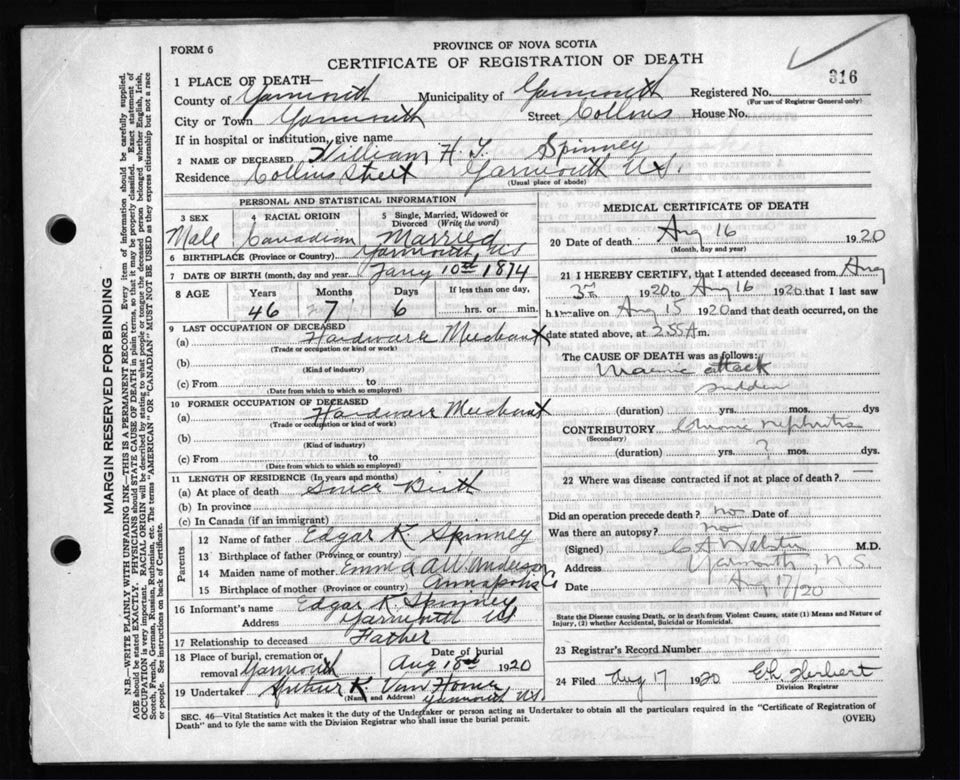 FORM 6
PROVINCE OF NOVA SCOTIA
CERTIFICATE OF REGISTRATION OF DEATH
316
1 PLACE OF DEATH—
County of Yarmouth Municipality of Yarmouth Registered No.
(For use of Registrar General only)
City or Town Yarmouth Street Collins House No.
If in hospital or institution, give name
2 NAME OF DECEASED William H. T. Spinney
Residence Collins Street Yarmouth N.S.
(Usual place of abode)
PERSONAL AND STATISTICAL INFORMATION
3 SEX Male
4 RACIAL ORIGIN Canadian
5 Single, Married, Widowed or Divorced (Write the word) Married
6 BIRTHPLACE (Province or Country) Yarmouth, NS
7 DATE OF BIRTH (month, day and year) Jany 10th 1874
8 AGE Years 46 Months 7 Days 6 If less than one day, hrs. or min.
9 LAST OCCUPATION OF DECEASED
(a) Hardware Merchant
(Trade or occupation or kind of work)
(b)
(Kind of industry)
(c) From to
(Date from which to which so employed)
10 FORMER OCCUPATION OF DECEASED
(a) Hardware Merchant
(Trade or occupation or kind of work)
(b)
(Kind of industry)
(c) From to
(Date from which to which so employed)
11 LENGTH OF RESIDENCE (In years and months)
(a) At place of death Since Birth
(b) In province
(c) In Canada (if an immigrant)
Parents
12 Name of father Edgar K. Spinney
13 Birthplace of father (Province or country)
14 Maiden name of mother Emma Anderson
15 Birthplace of mother (Province or country) Annapolis Co
16 Informant's name Edgar K. Spinney
Address Yarmouth NS
17 Relationship to deceased Father
18 Place of burial, cremation or removal Yarmouth Date of burial Aug 18th 1920
19 Undertaker Arthur K. Van Horne
(Name and Address) Yarmouth N.S.
MEDICAL CERTIFICATE OF DEATH
20 Date of death Aug 16 1920
(Month, day and year)
21 I HEREBY CERTIFY, that I attended deceased from Aug
3rd 1920 to Aug 16 1920 that I last saw
him alive on Aug 15 1920 and that death occurred, on the
date stated above, at 2.55 A m.
The CAUSE OF DEATH was as follows:
Uraemic attack
sudden
(duration) yrs. mos. dys
CONTRIBUTORY Chronic nephritis
(Secondary)
(duration) ? yrs. mos. dys.
22 Where was disease contracted if not at place of death?
Did an operation precede death? no Date of
Was there an autopsy? no
(Signed) C A Webster M.D.
Address Yarmouth, N.S.
Date Aug 17/20
State the Disease causing Death, or in death from Violent Causes, state (1) Means and Nature of
Injury, (2) whether Accidental, Suicidal or Homicidal.
23 Registrar's Record Number
24 Filed Aug 17 1920 Herbert
Division Registrar
SEC. 46—Vital Statistics Act makes it the duty of the Undertaker or person acting as Undertaker to obtain all the particulars required in the "Certificate of Registration of
Death" and to fyle the same with the Division Registrar who shall issue the burial permit.
(OVER)
MARGIN RESERVED FOR BINDING
N.B.—WRITE PLAINLY WITH UNFADING INK—THIS IS A PERMANENT RECORD. Every item of information should be carefully supplied.
AGE should be stated EXACTLY. PHYSICIANS should STATE CAUSE OF DEATH in plain terms, so that it may be properly classified. Exact statement of
OCCUPATION is very important. RACIAL ORIGIN will be described by stating to what people or tongue the deceased person belonged whether English, Irish,
Scotch, French, German, Russian, Ruthenian, etc. The terms "AMERICAN" or "CANADIAN" MUST NOT BE USED as they express citizenship but not a race
or people. See instructions on back of Certificate.